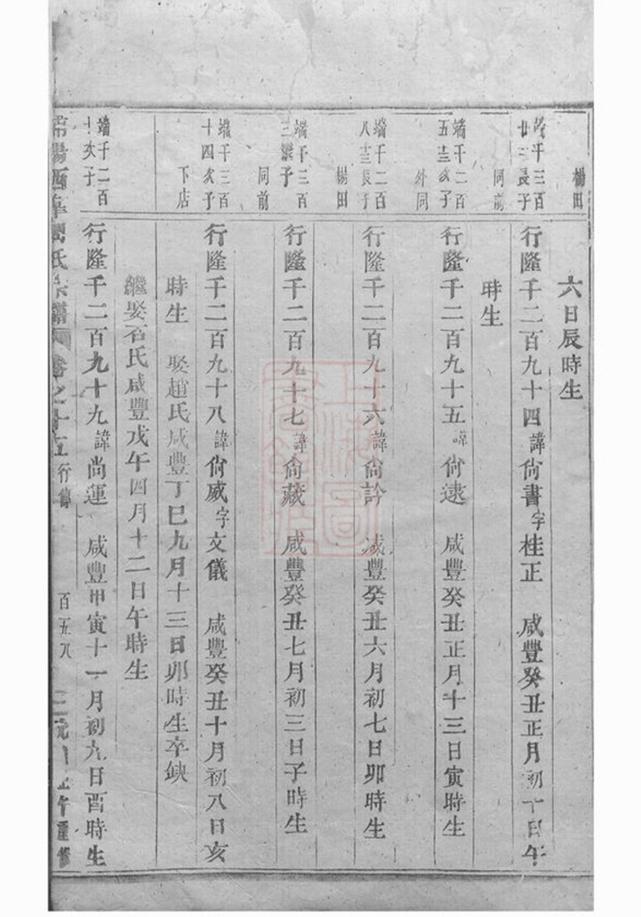 楊田
六日辰時生
端千三百
廿三長子
同前
行隆千二百九十四諱尙書字桂正　咸豐癸丑正月初十日午
時生
端千二百
五十三次子
外同
行隆千二百九十五諱尙遠　咸豐癸丑正月十三日寅時生
端千二百
八十三長子
楊田
行隆千二百九十六諱尙訡　咸豐癸丑六月初七日卯時生
端千三百
三繼子
同前
行隆千二百九十七諱尙藏　咸豐癸丑七月初三日子時生
端千三百
十四次子
下店
行隆千二百九十八諱尙威字文儀　咸豐癸丑十月初八日亥
時生　娶趙氏咸豐丁巳九月十三日卯時生卒缺
繼娶石氏咸豐戊午四月十二日午時生
端千二百
十次子
行隆千二百九十九諱尚運　咸豐甲寅十一月初九日酉時生
西華周氏宗譜　卷之十五　行傳　百五八　午重修